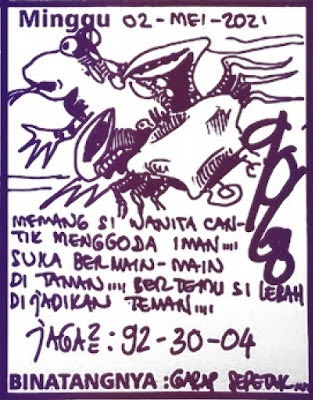 Minggu 02-MEI-2021
MEMANG SI WANITA CAN-
TIK MENGGODA IMAN....
SUKA BERMAIN-MAIN
DI TAMAN.... BERTEMU SI LEBAH
DIJADIKAN TEMAN....
JAGA2 : 92-30-04
BINATANGNYA : GARAP SEPETAK...